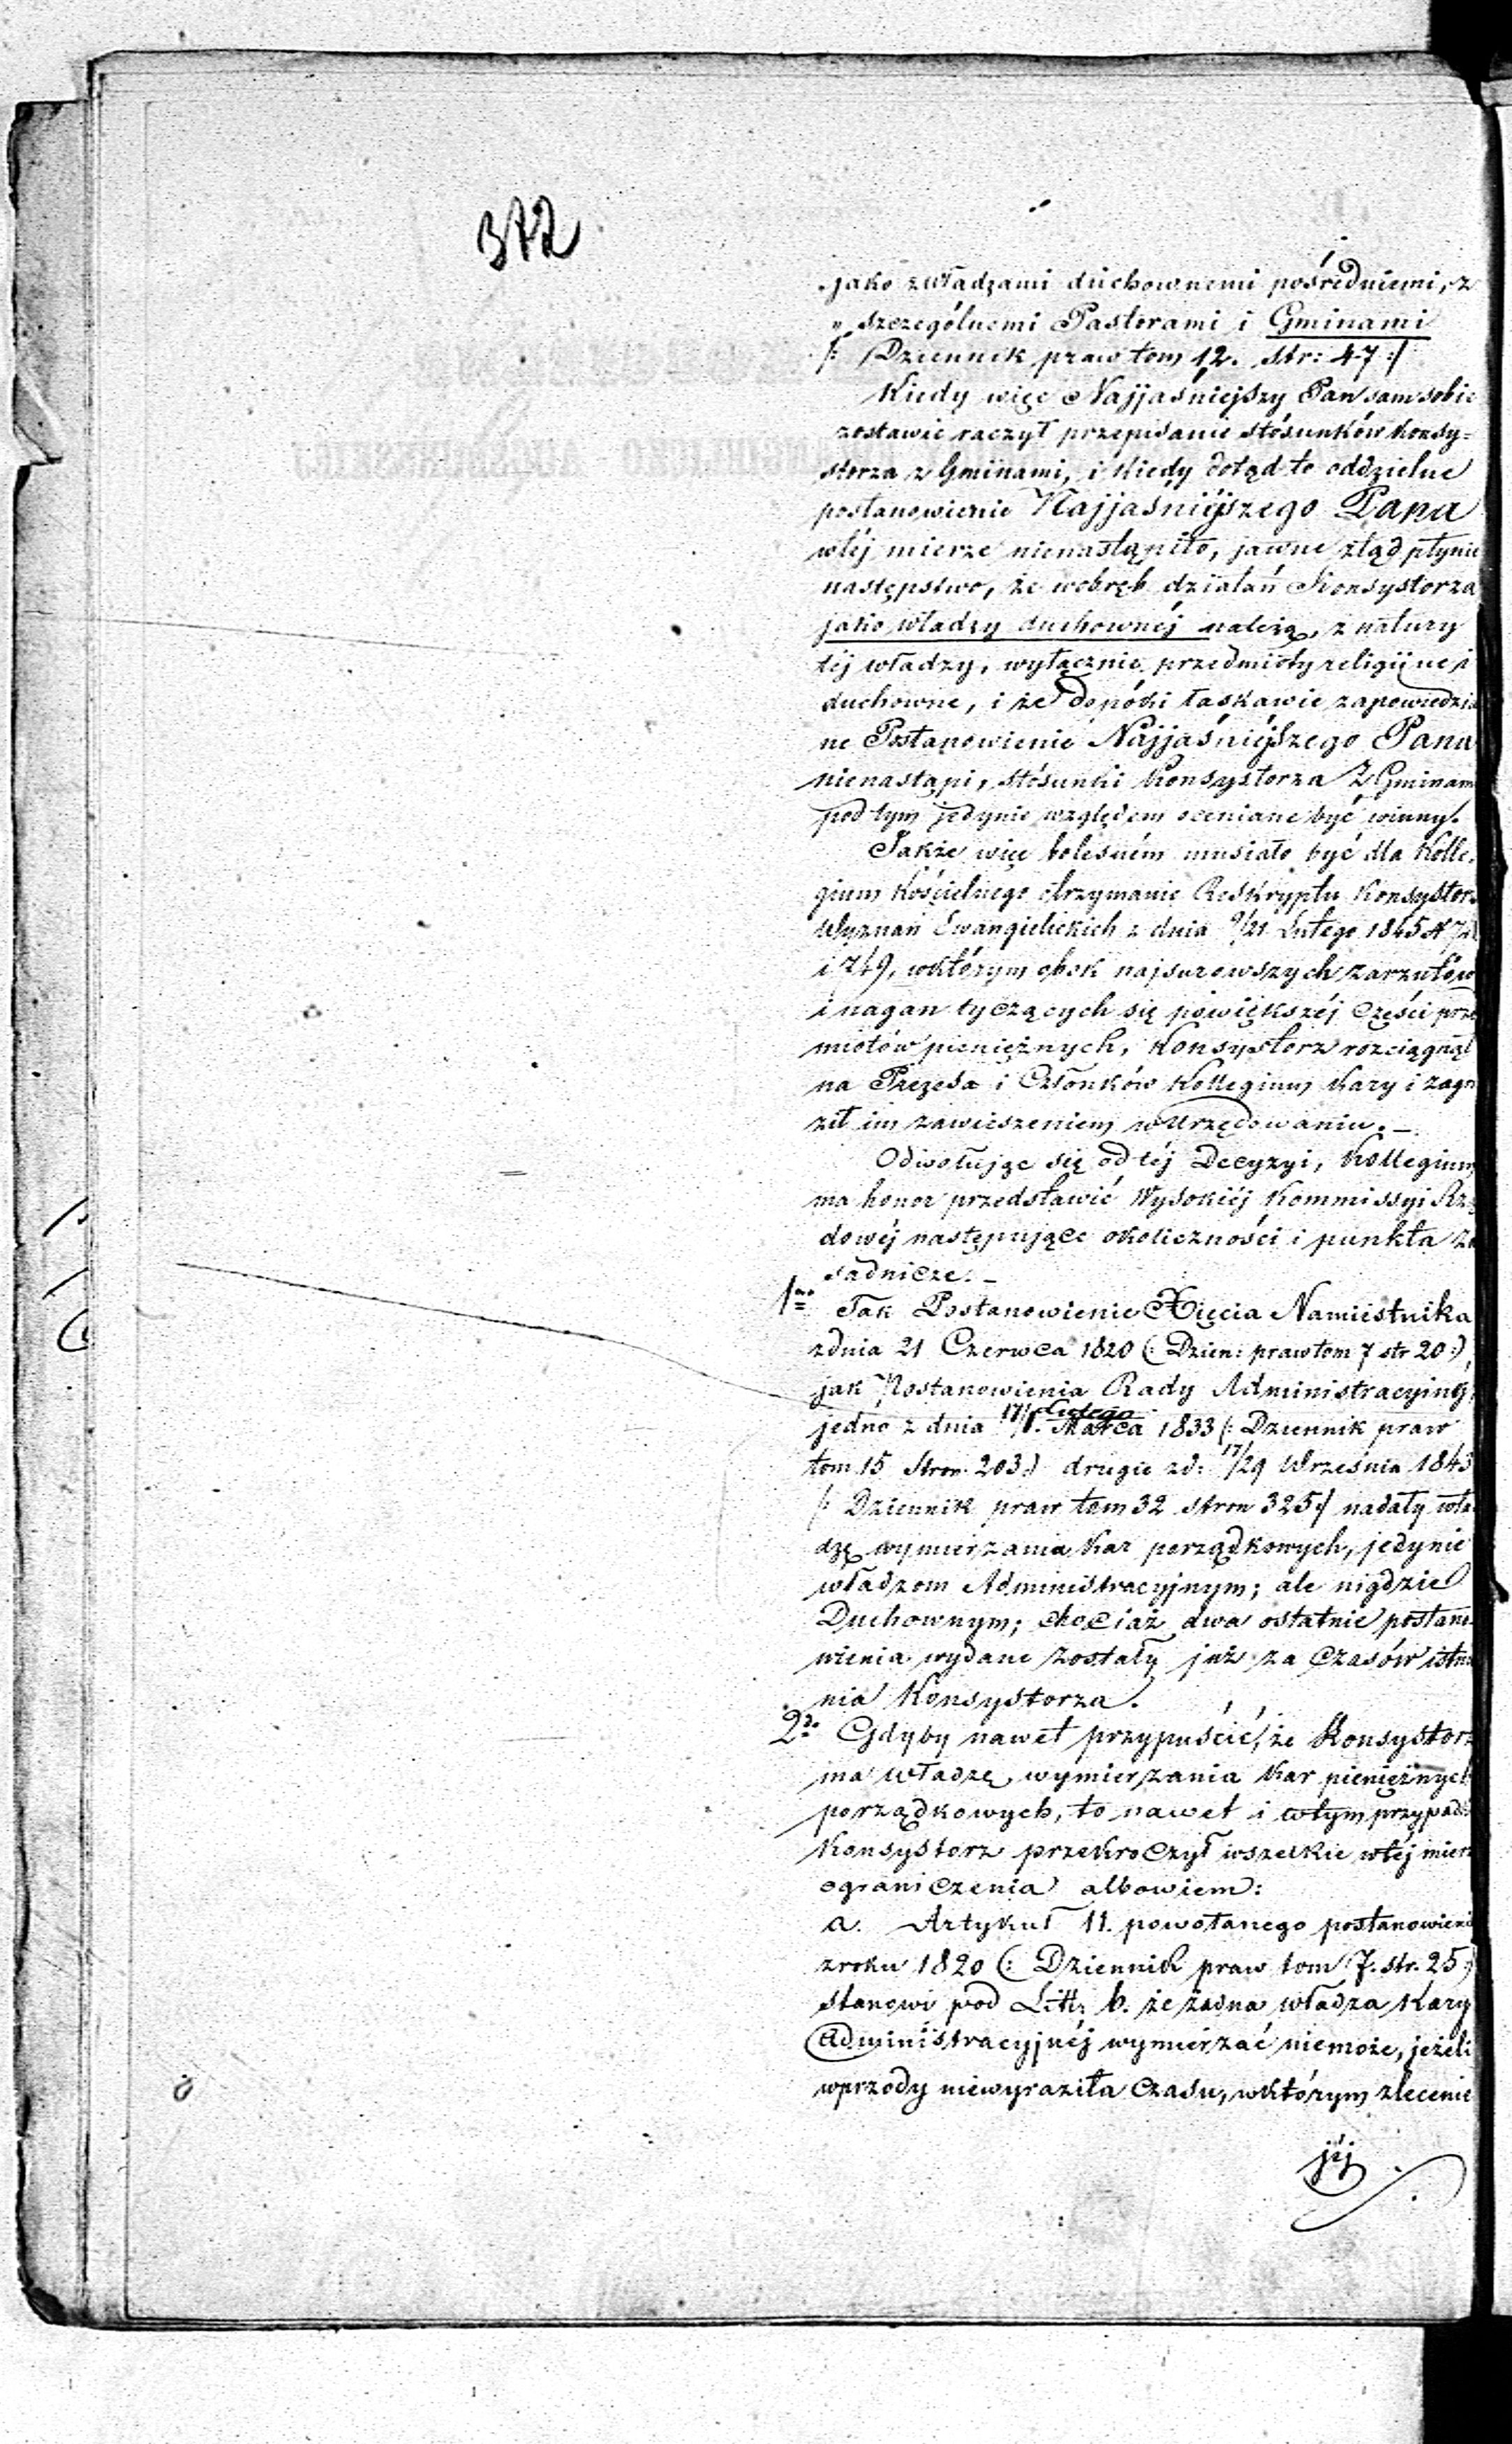 372
„jako z władzami duchownemi pośredniemi, z
„szczególnemi Pastorami i Gminami
/: Dziennik praw tom 12. str: 47 :/
Kiedy więc Najjaśniejszy Pan sam sobie
zostawić raczył przepisanie stósunków Konsy=
storza z Gminami, i kiedy dotąd to oddzielne
postanowienie Najjaśniejszego Pana
wtéj mierze nienastąpiło, jawne ztąd płynie
następstwo, że wobręb działań Konsystorza
jako władzy duchownéj należą, z natury
téj władzy, wyłącznie przedmioty religijne i
duchowne, i że dopóki łaskawie zapowiedzia
ne Postanowienie Najjaśniejszego Pana
nienastąpi, stósunki Konsystorza z Gminam
pod tym jedynie względem oceniane być winny.
Jakże więc bolesném musiało być dla Kolle-
gium Kościelnego otrzymanie Reskryptu Konsystor
Wyznań Ewangielickich z dnia 9/21 Lutego 1845 N
i 749, wktórym obok najsurowszych zarzutów
i nagan tyczących się powiększéj części prze
miotów pieniężnych, Konsystorz rozciągnął
na Prezesa i Członków Kollegium kary i zagro
ził im zawieszeniem w urzędowaniu. –
Odwołując się od téj Decyzyi, Kollegium
ma honor przedstawić Wysokiéj Kommissyi Rzą
dowéj następujące okoliczności i punkta za
sadnicze. –
1mo Tak Postanowienie Xięcia Namiestnika
zdnia 21 Czerwca 1820 (: Dzien: praw tom 7 str 20 :),
jak Postanowienia Rady Administracyinéj,
jedno z dnia 17/1. Lutego Marca 1833 (: Dziennik praw
tom 15 Stron. 203 :) drugie zd: 17/29 Września 1843
/: Dziennik praw tom 32 stron 325 :/ nadały wła
dzę wymierzania kar porządkowych, jedynie
władzom Administracyjnym; ale nigdzie
Duchownym; chociaż dwa ostatnie postano
wienia wydane zostały już za czasów istnie
nia Konsystorza.
2do Gdyby nawet przypuścić, że Konsystorz
ma władzę wymierzania kar pieniężnych
porządkowych, to nawet i wtym przypadku
Konsystorz przekroczył wszelkie wtéj mierz
ograniczenia albowiem:
a. Artykuł 11. powołanego postanowieni
zroku 1820 (: Dziennik praw tom 7. str. 25 :)
stanowi pod Litt: b. że żadna władza kary
administracyjnéj wymierzać niemoże, jeżeli
wprzody niewyraziła czasu, wktórym zlecenie
jéj